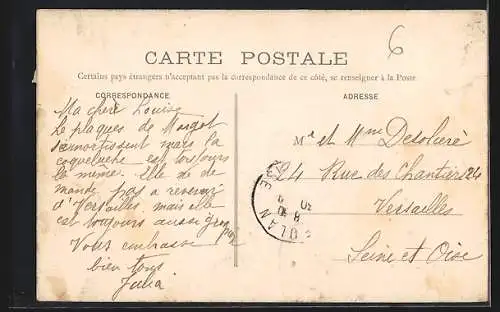 6
CARTE POSTALE
Certains pays étrangers n'acceptant pas la correspondance de ce côté, se renseigner à la Poste
CORRESPONDANCE
Ma chère Louise
Le plaques de Margot
s'amortissent mais la
coqueluche est toujours
la même. Elle de de
mande pas a
d'Versailles mais elle
est toujours aussi
Vous embrasse
bien tous
Julia
ADRESSE
Mr et Mme Desolieré
24 Rue des Chantiers 24
Versailles
Seine et Oise
ULAN